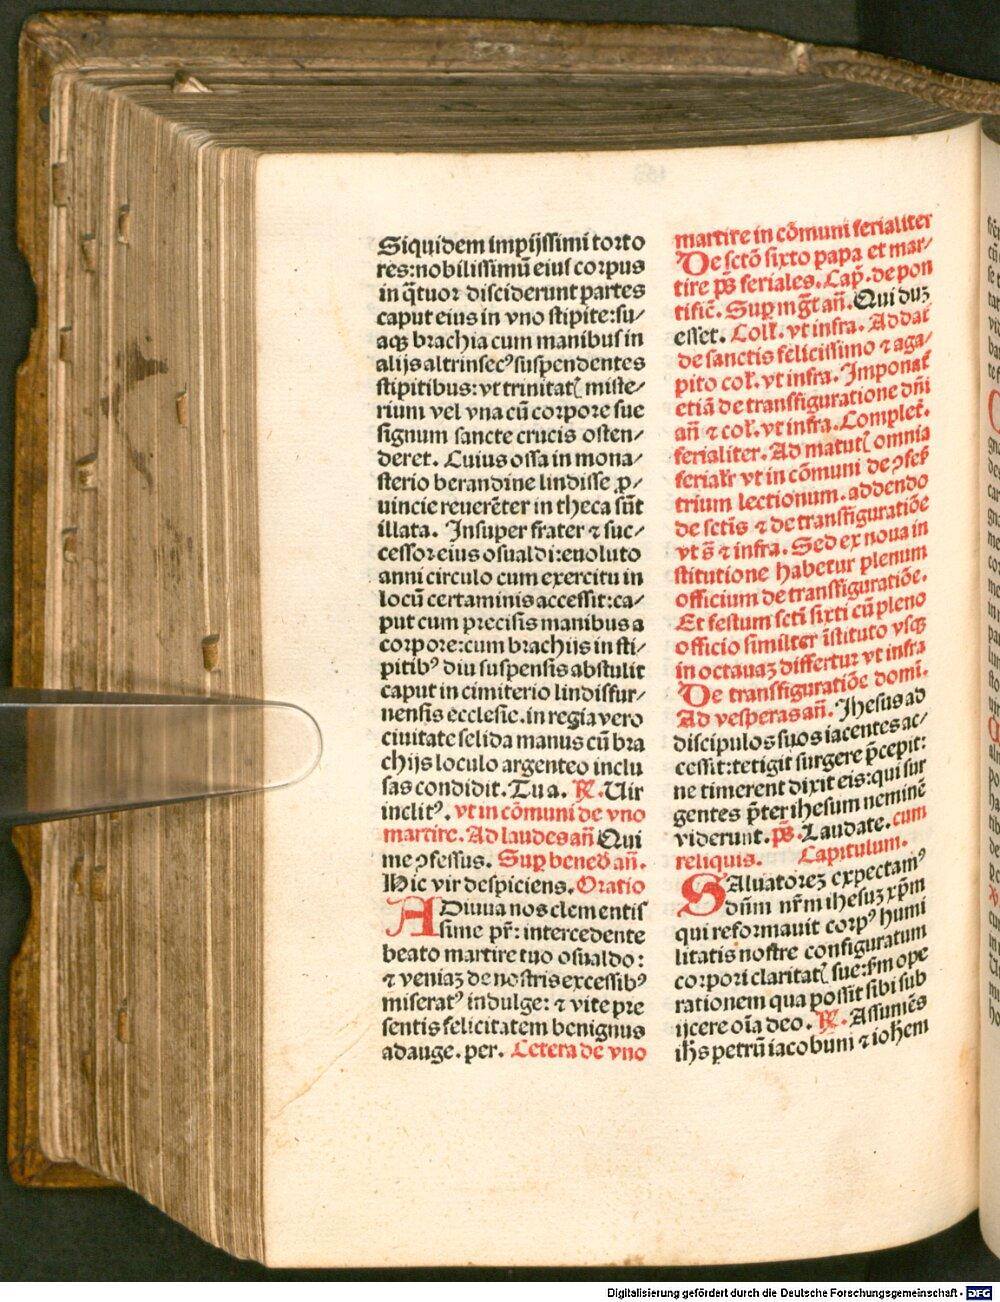 Siquidem impijssimi torto
res:nobilissimū eius corpus
in q̄tuor disciderunt partes
caput eius in vno stipite:su⸗
aqꝫ brachia cum manibus in
alijs altrinsecꝰ suspendentes
stipitibus: vt trinitatꝭ miste⸗
rium vel vna cū corpore sue
signum sancte crucis osten⸗
deret. Cuius ossa in mona⸗
sterio berandine lindisse ꝓ⸗
uincie reuerēter in theca sūt
illata. Insuper frater ⁊ suc⸗
cessor eius osualdi:euoluto
anni circulo cum exercitu in
locū certaminis accessit:ca⸗
put cum precisis manibus a
corpore:cum brachijs in sti⸗
pitibꝰ diu suspensis abstulit
caput in cimiterio lindissur⸗
nensis ecclesie. in regia vero
ciuitate selida manus cū bra
chijs loculo argenteo inclu
sas condidit. Tu a. ℟. Uir
inclitꝰ. vt in cōmuni de vno
martire. Ad laudes añ Qui
me ꝯfessus. Suꝑ bened̄ añ.
Hic vir despiciens. Oratio
ADiuua nos clementis
sime pr̄: intercedente
beato martire tuo osualdo:
⁊ veniaꝫ de nostris excessibꝰ
miseratꝰ indulge: ⁊ vite pre
sentis felicitatem benignus
adauge. per. Cetera de vno
martire in cōmuni ferialiter
De sctō sixto papa et mar⸗
tire p̄s feriales. Cap̄. de pon
tific̄. Suꝑ mg̃t añ. Qui duꝫ
esset. Coll̄. vt infra. Ad dat̄
de sanctis felicissimo ⁊ aga⸗
pito col̄. vt infra. Imponat̄
etiā de transfiguratione dn̄i
añ ⁊ col̄. vt infra. Complet̄.
ferialiter. Ad matutꝭ omnia
ferialr̄ vt in cōmuni de ꝯfes̄
trium lectionum. addendo
de sctīs ⁊ de transfiguratiōe
vt s̄ ⁊ infra. Sed ex noua in
stitutione habetur plenum
officium de transfiguratiōe.
Et festum sctī sixti cū pleno
officio similiter īstituto vsqꝫ
in octauaꝫ differtur vt infra
De transfiguratiōe domī.
Ad vesperas añ. Jhesus ad
discipulos suos iacentes ac⸗
cessit:tetigit surgere p̄cepit:
ne timerent dixit eis:qui sur
gentes p̄ter ihesum neminē
viderunt. p̄s. Laudate. cum
reliquis. Capitulum.
SAluatoreꝫ expectamꝰ
dn̄m nr̄m ihesuꝫ xp̄m
qui reformauit corpꝰ humi
litatis nostre configuratum
corpori claritatꝭ sue:s̄m ope
rationem qua possit sibi sub
ijcere oīa deo. ℟. Assumēs
ih̄s petrū iacobum ⁊ ioh̄em
Digitalisierung gefördert durch die Deutsche Forschungsgemeinschaft - DFG